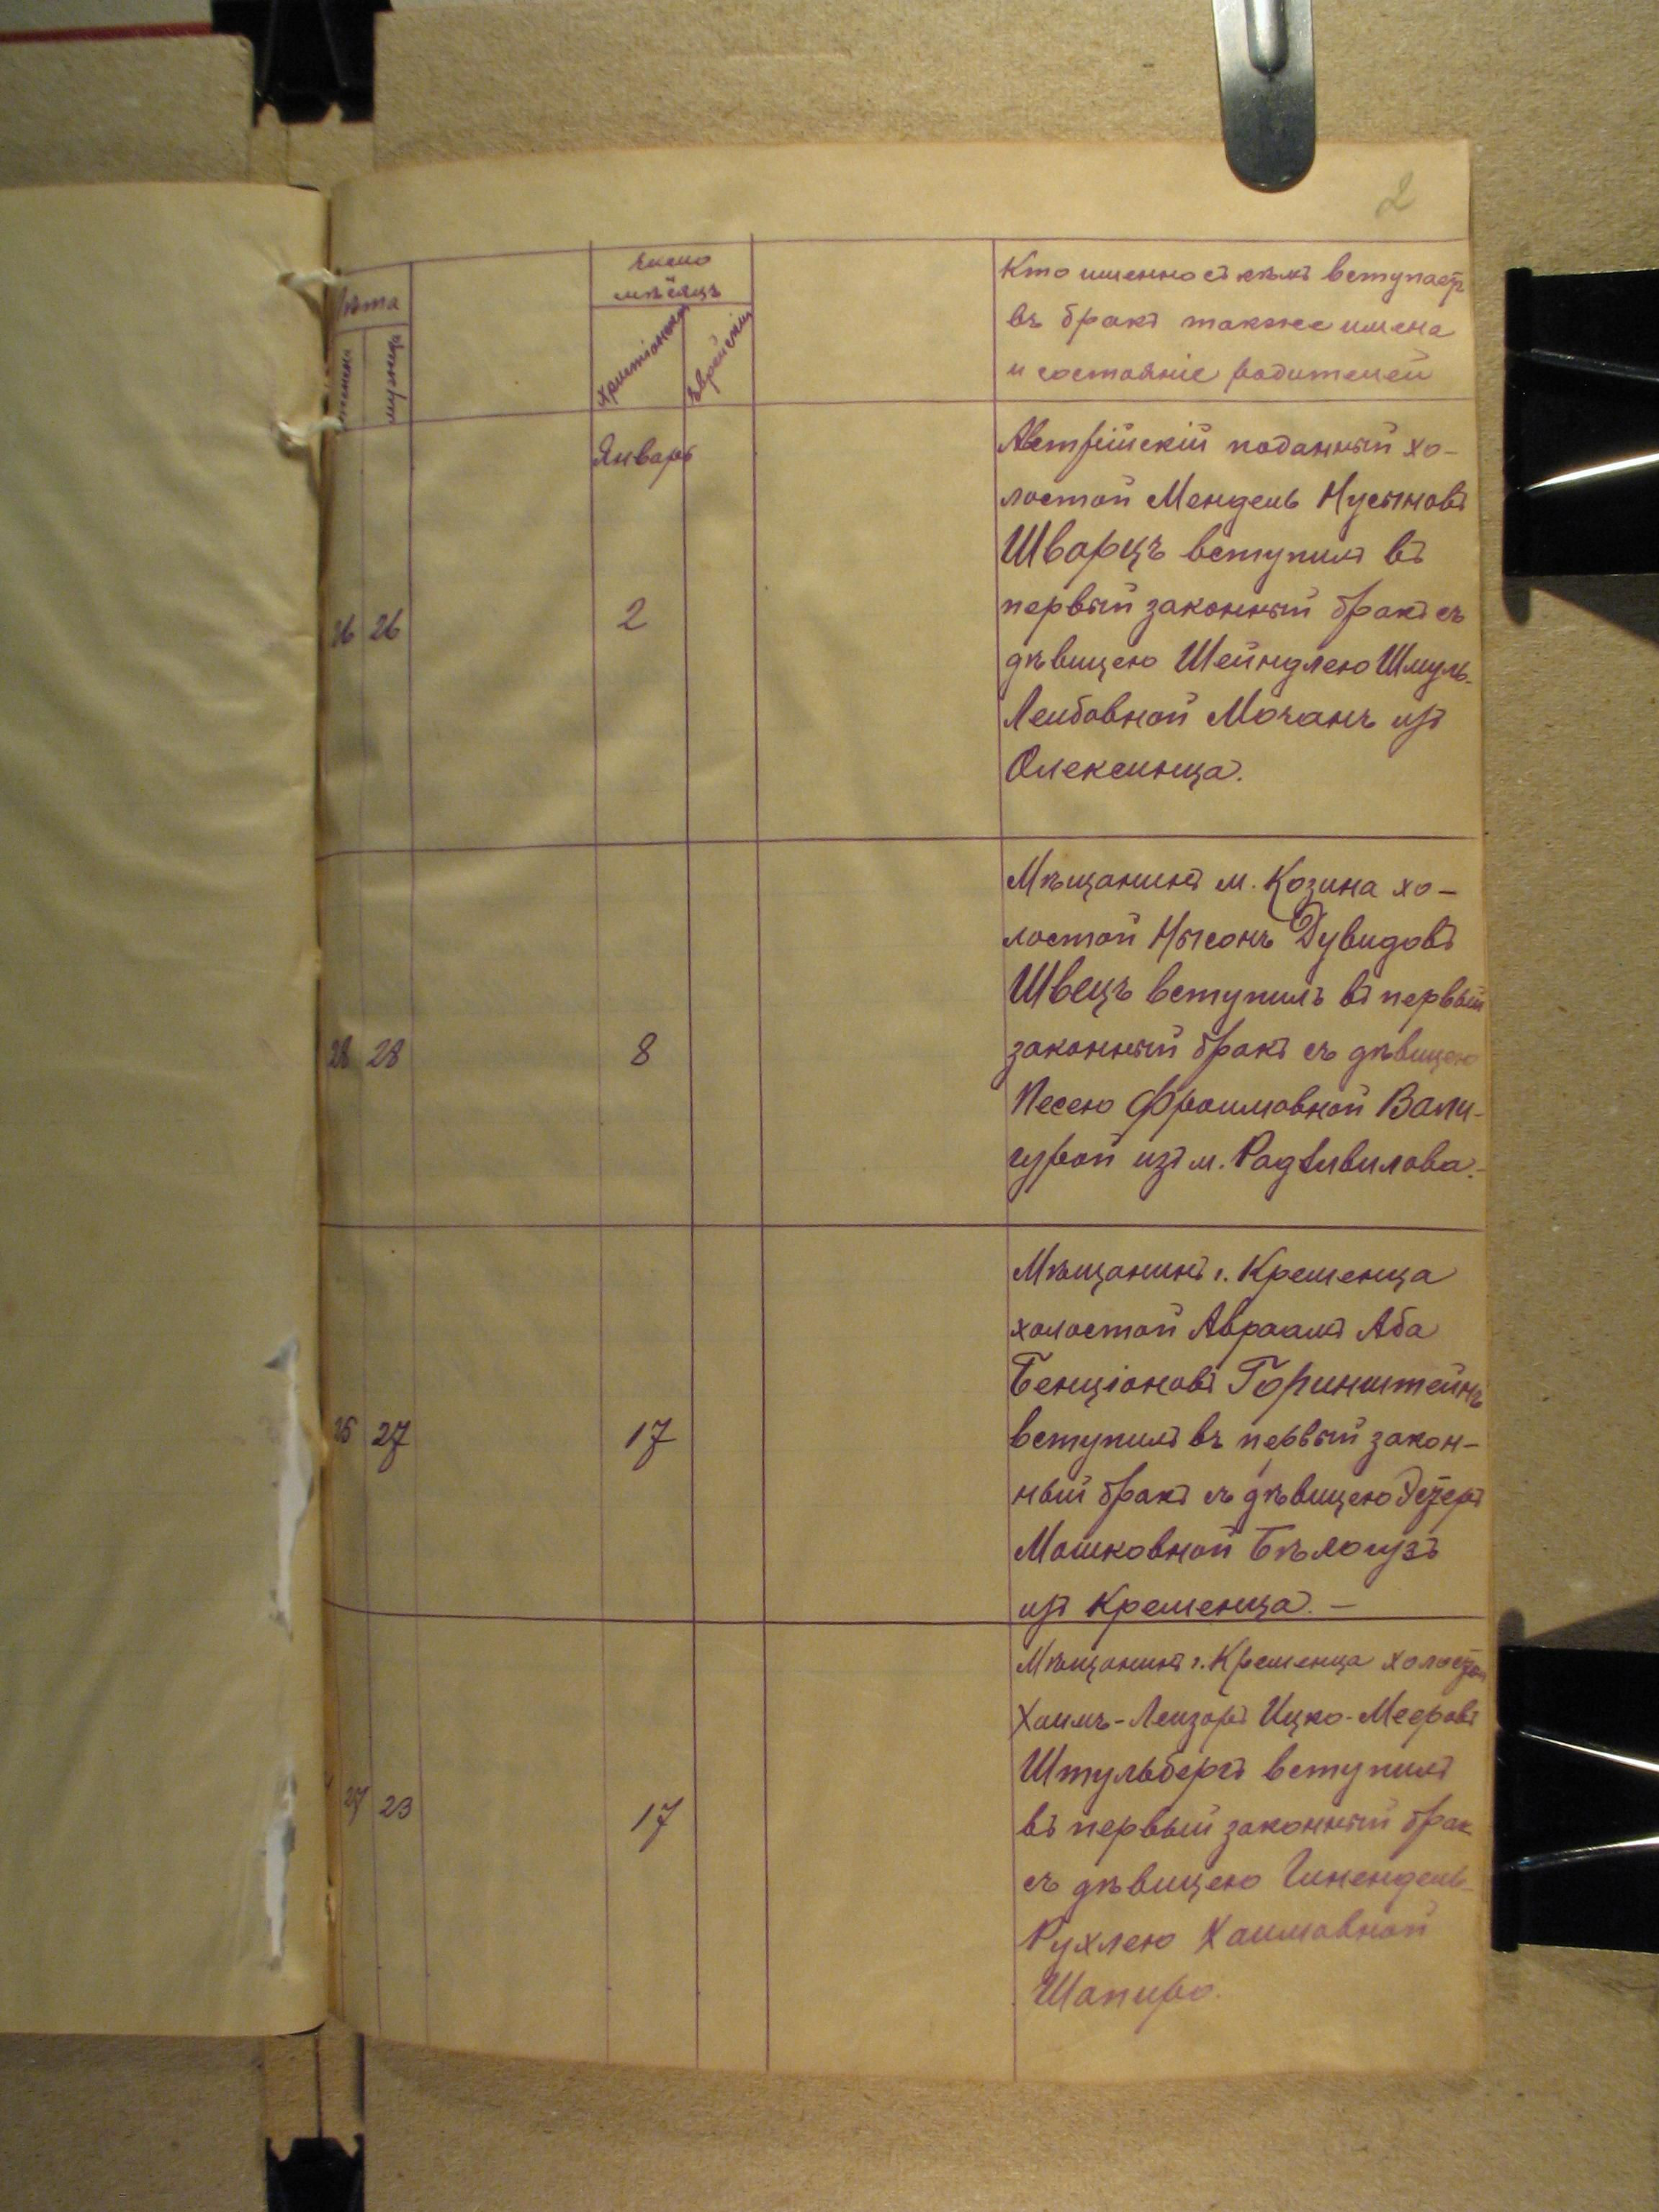 2
Лѣта
женск
мужчи
число
мѣсяцъ
Христіанскій
Еврейскій
Кто именно съ кѣмъ вступаетъ
въ бракъ также имена
и состояніе родителей
Январь
26 26 2
Австрійскій поданный хо-
лостой Мендель Нусыновъ
Шварцъ вступилъ въ
первый законный бракъ съ
дѣвицею Шейндлею Шмуль-
Лейбовной Мочанъ изъ
Олексинца.
28 28 8
Мѣщанинъ м. Козина хо-
лостой Нысонъ Дувидовъ
Швецъ вступилъ въ первый
законный бракъ съ дѣвицею
Песею Фроимовной Вали-
гурой изъ м. Радзивилова.-
25 27 17
Мѣщанинъ г. Кременца
холостой Авраамъ Аба
Бенціоновъ Горинштейнъ
вступилъ въ первый закон-
ный бракъ съ дѣвицею Эстеръ
Мошковной Бѣлогузъ
изъ Кременца.-
27 23 17
Мѣщанинъ г. Кременца холостой
Хаимъ-Лейзоръ Ицко-Мееровъ
Штульбергъ вступилъ
въ первый законный брак
съ дѣвицею Гинендель-
Рухлею Хаимовной
Шапиро.